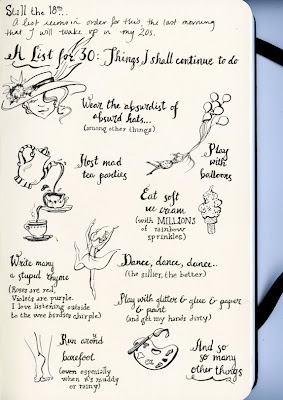 Still the 18th...
A list seems in order for this, the last morning
that I will wake up in my 20s.
A List for 30: Things I shall continue to do
Wear the absurdist of
absurd hats...
(among other things)
Host mad
tea parties
Play
with
balloons
Eat soft
ice cream
(with MILLIONS
of rainbow
sprinkles)
Write many
a stupid rhyme
(Roses are red,
Violets are purple.
I love listening outside
to the wee birdies chirple)
Dance, dance, dance...
(the sillier, the better)
Play with glitter & glue & paper
& paint
(and get my hands dirty)
Run around
barefoot
(even especially
when it's muddy
or rainy)
And so
so many
other things